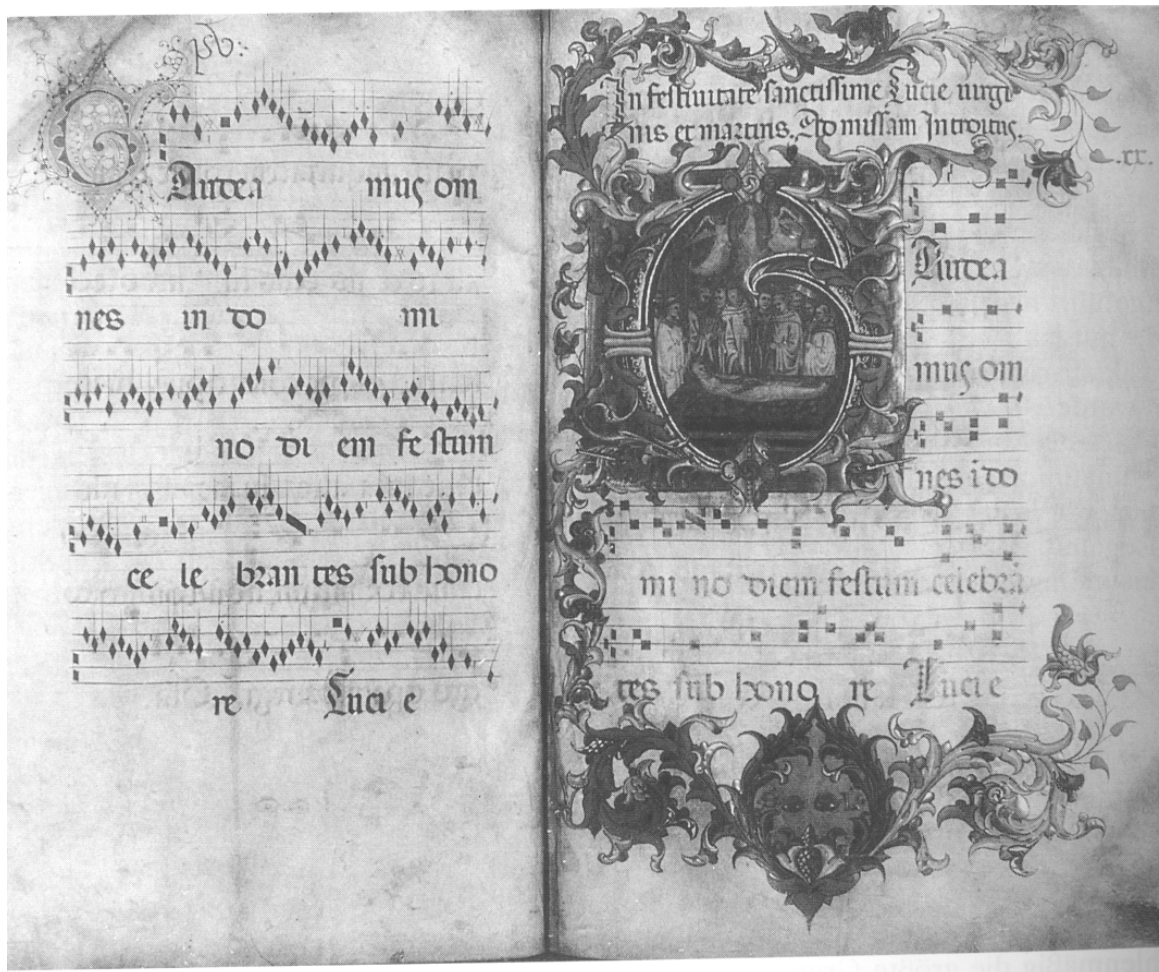 Gaudea muſ om
nes in do mi
no di em fe ſtum
ce le bran tes ſub hono
re Lucı e
In feſtiuitate ſanctiſſime Lucie uirgi
nis et martiris. Ad miſſam Introituſ.
.xx.
Gaudea
muſ om
nes i do
mi no diem feſtum celebrā
tes ſub hono re Luci e